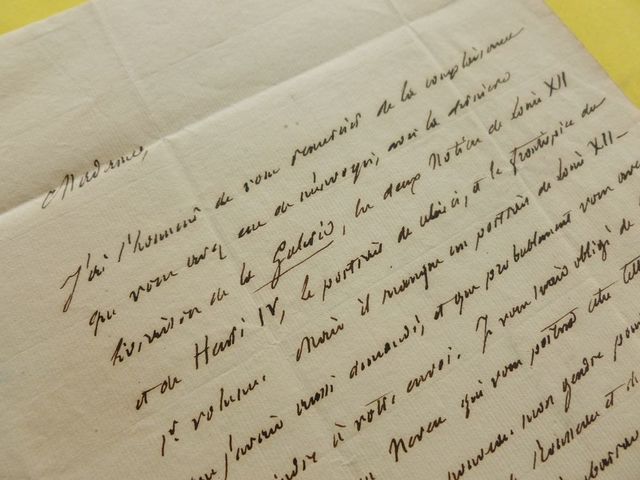 Madame,
J'ai l'honneur de vous remercier de la complaisance
que vous avez eue de m'envoyer, avec la dernière
livraison de la Galerie, les deux Notices de Louis XII
et de Henri IV, le portrait de celui-ci, et le frontispice du
1er volume. Mais il manque un portrait de Louis XII –
que j'avais aussi demandé, et que probablement vous avez
à votre envoi. Je vous serais obligé de
Neveu qui vous portera cette lettre
mon gendre pour
l'honneur et